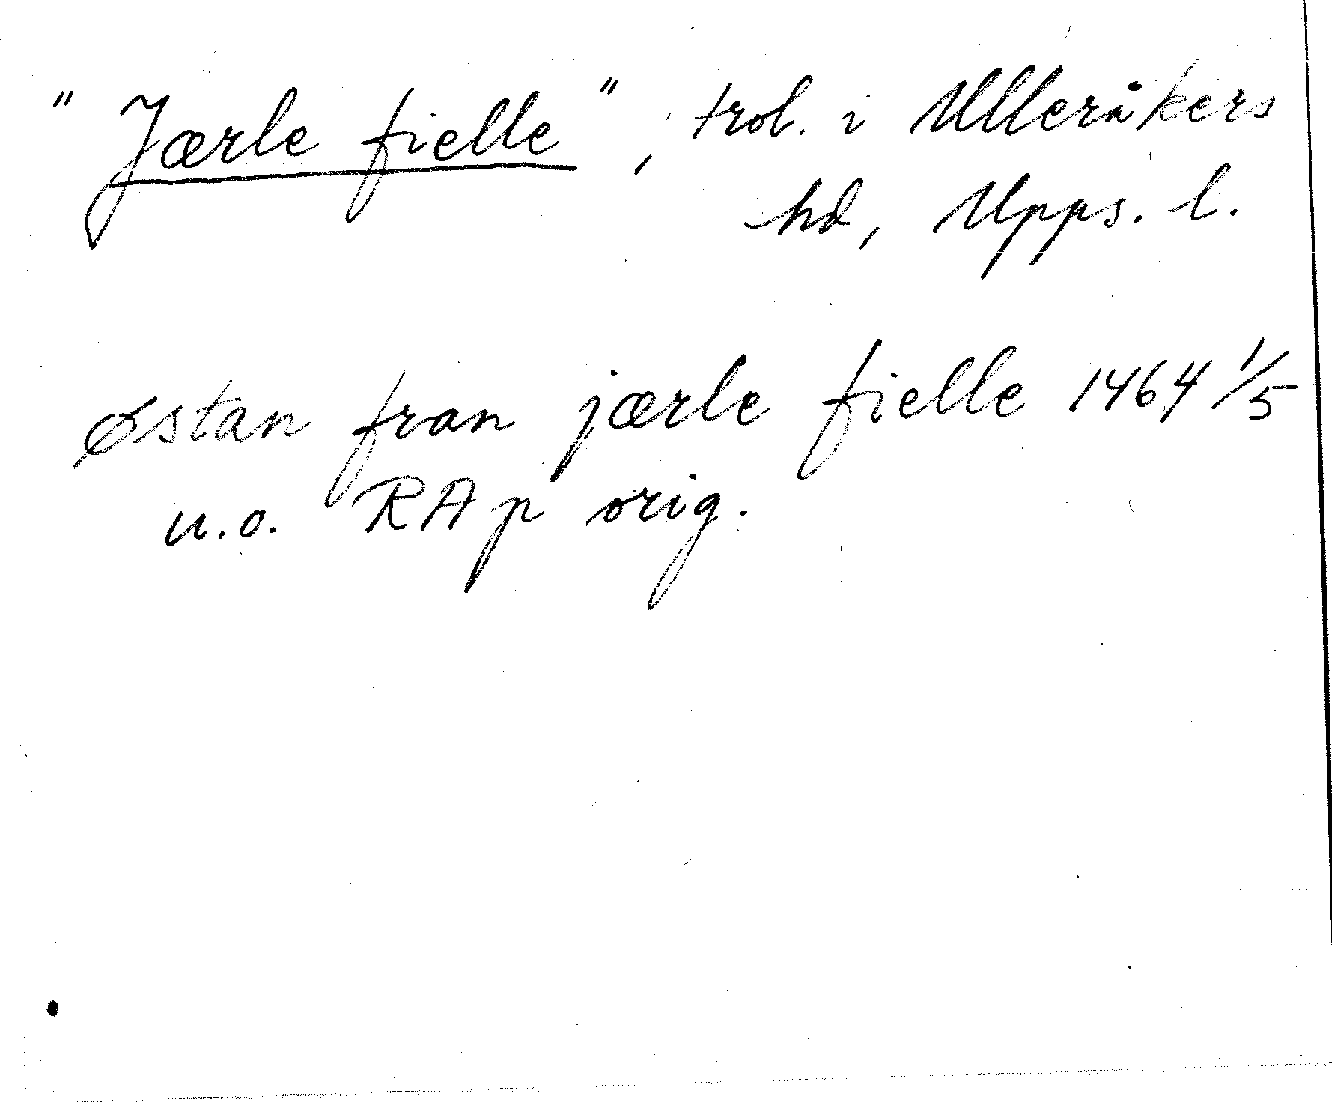 "Jærle fielle", trol. i Ulleråkers
hd, Upps. l.
østan fran jærle fielle 1464 1/5
u.o. RAp orig.